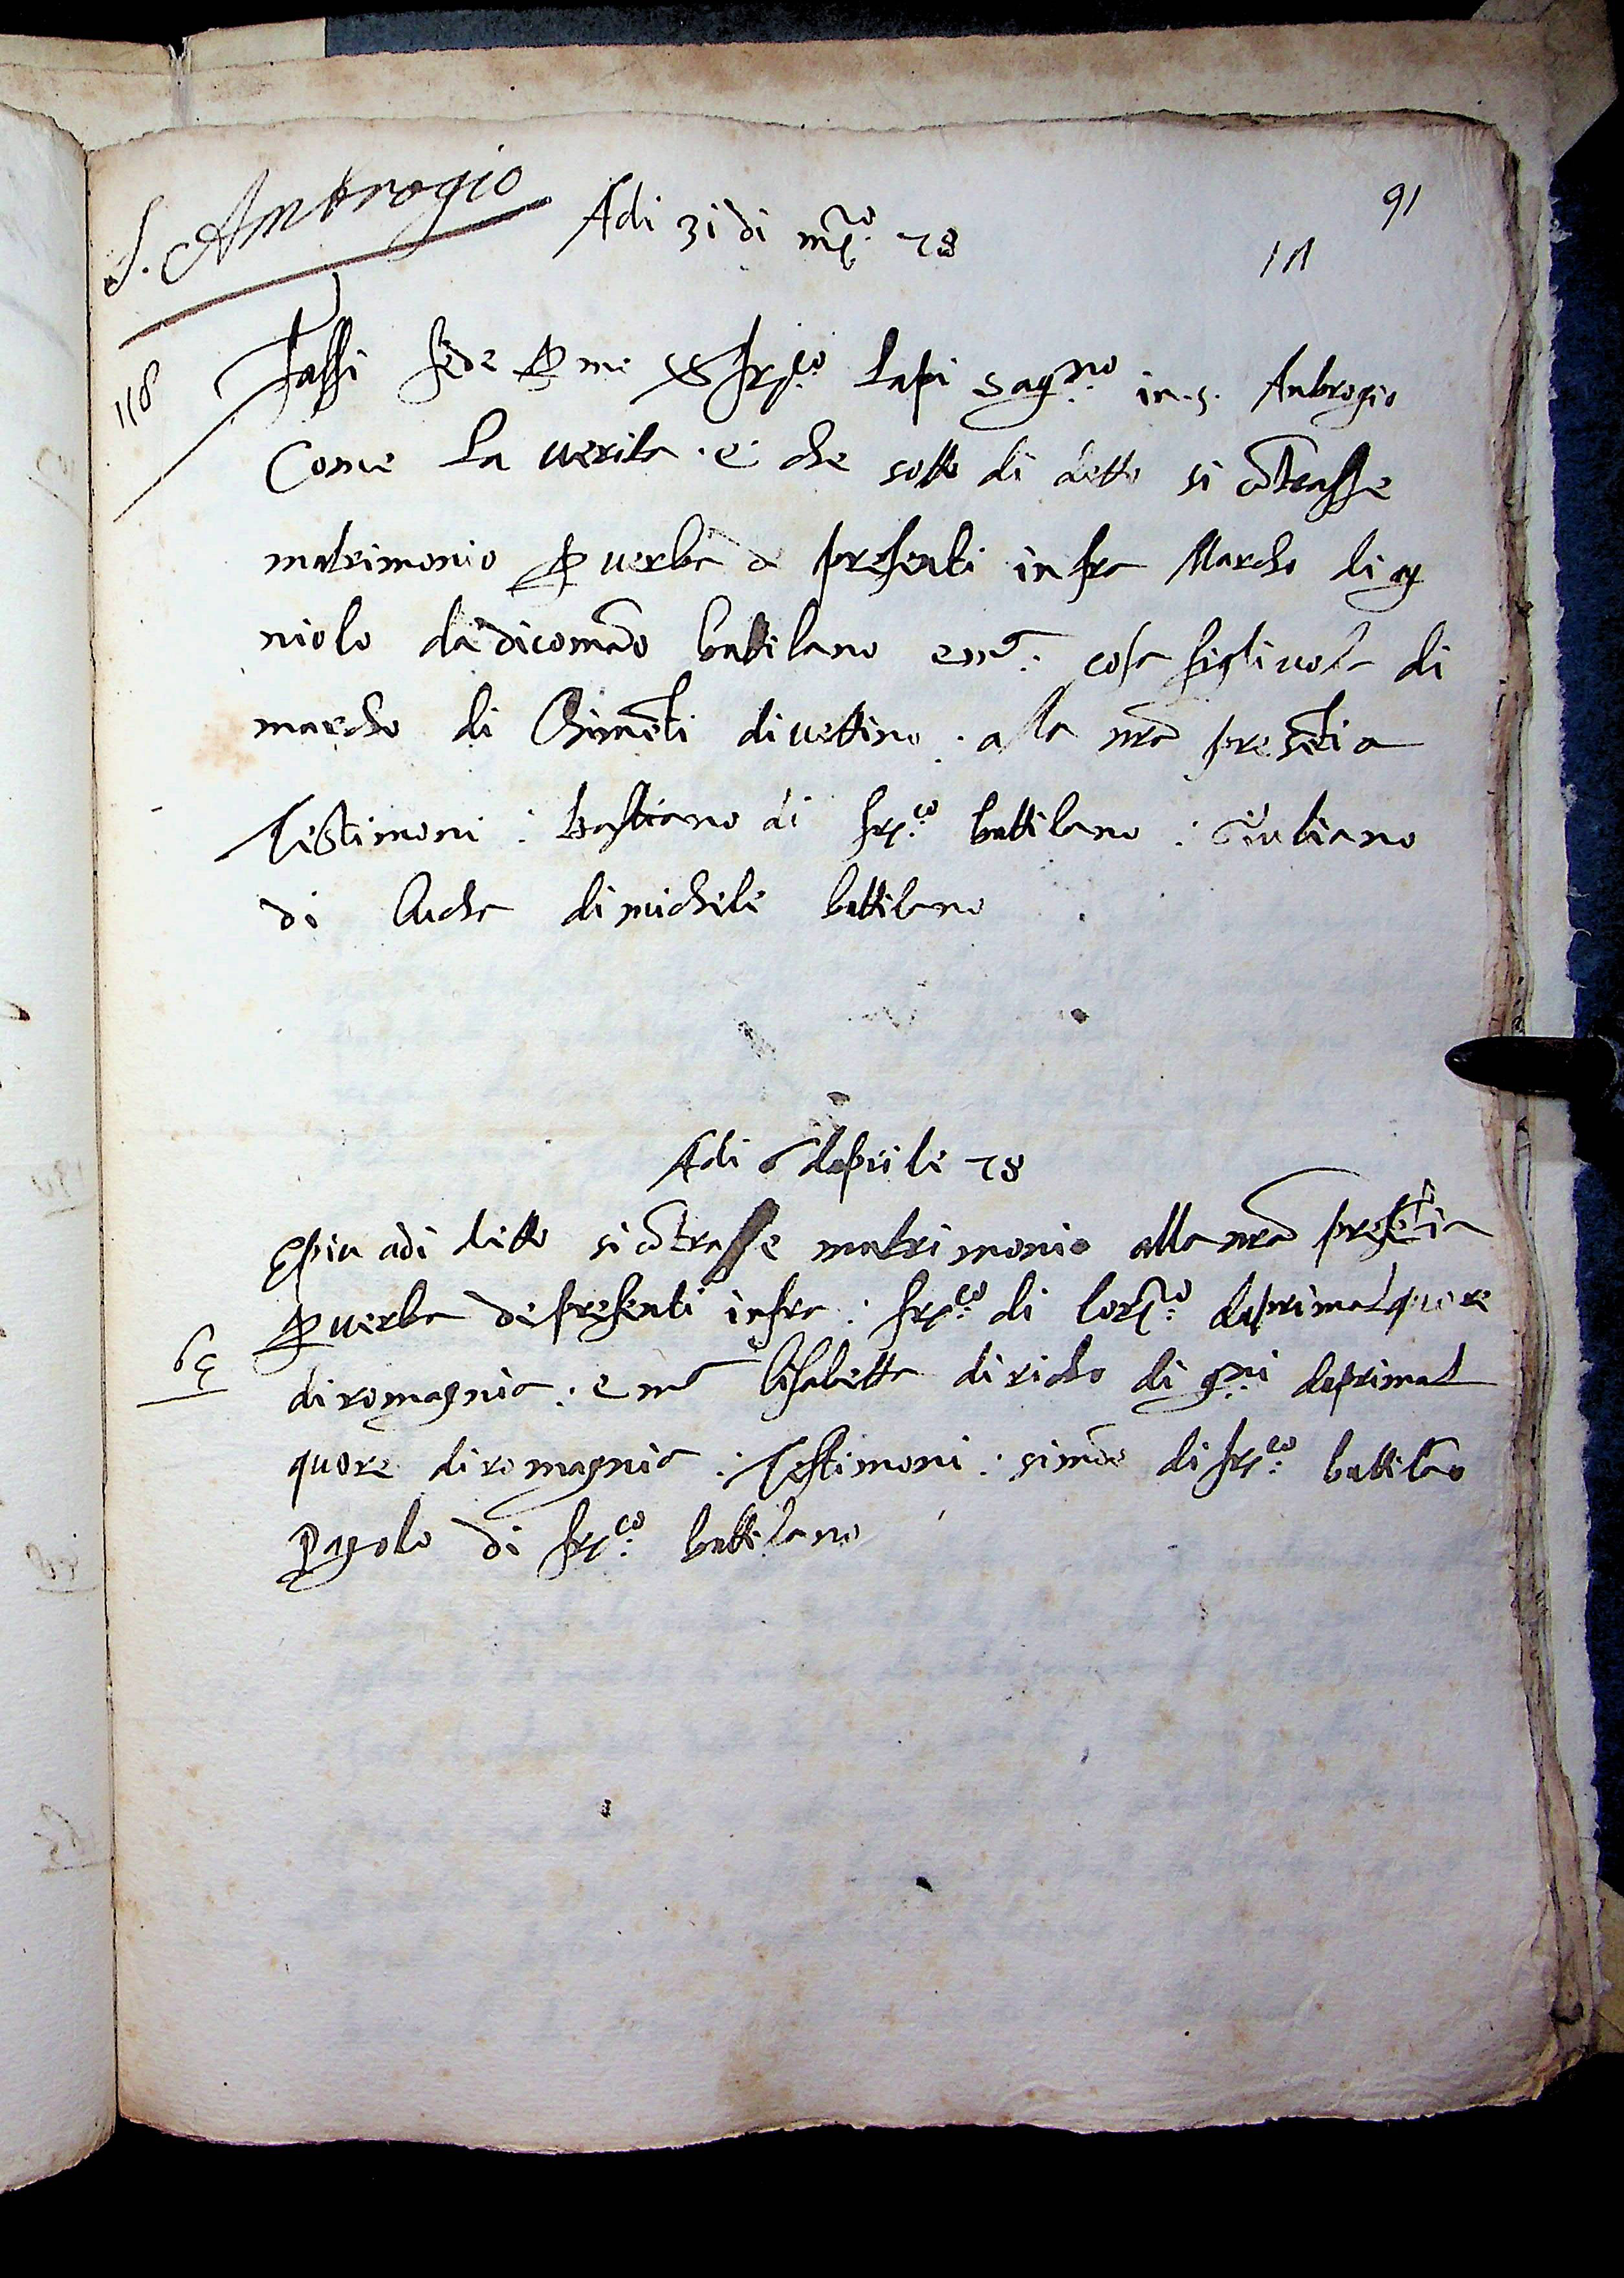 S. Ambrogio
Adi 31 di mzo 78
91
111
118
Fassi fede p me fr.co Lapi sag.no in s. Anbrogio
Come la verita e che sotto di detto si cōtrasse
matrimonio p verba de presenti infra Marcho di ag
niolo da dicomāo battilano e m.a cosa figliuola di
marcho di Chimēti di vettino alla nrā presētia
Testimoni : bastiano di fr.co battilano : Giuliano
di lucha di micheli battilano
Adi 6 daprile 78
E piu adi detto si cōtrasse matrimonio alla nrā presētia
p verba de presenti infra : fr.co di lor.zo da primalquore
di romagnia : e m.a lisabetta di richo di g.ni da primal
quore di romagnia : Testimoni : simōe di fr.co battilāo
pagolo di fr.co battilano
69